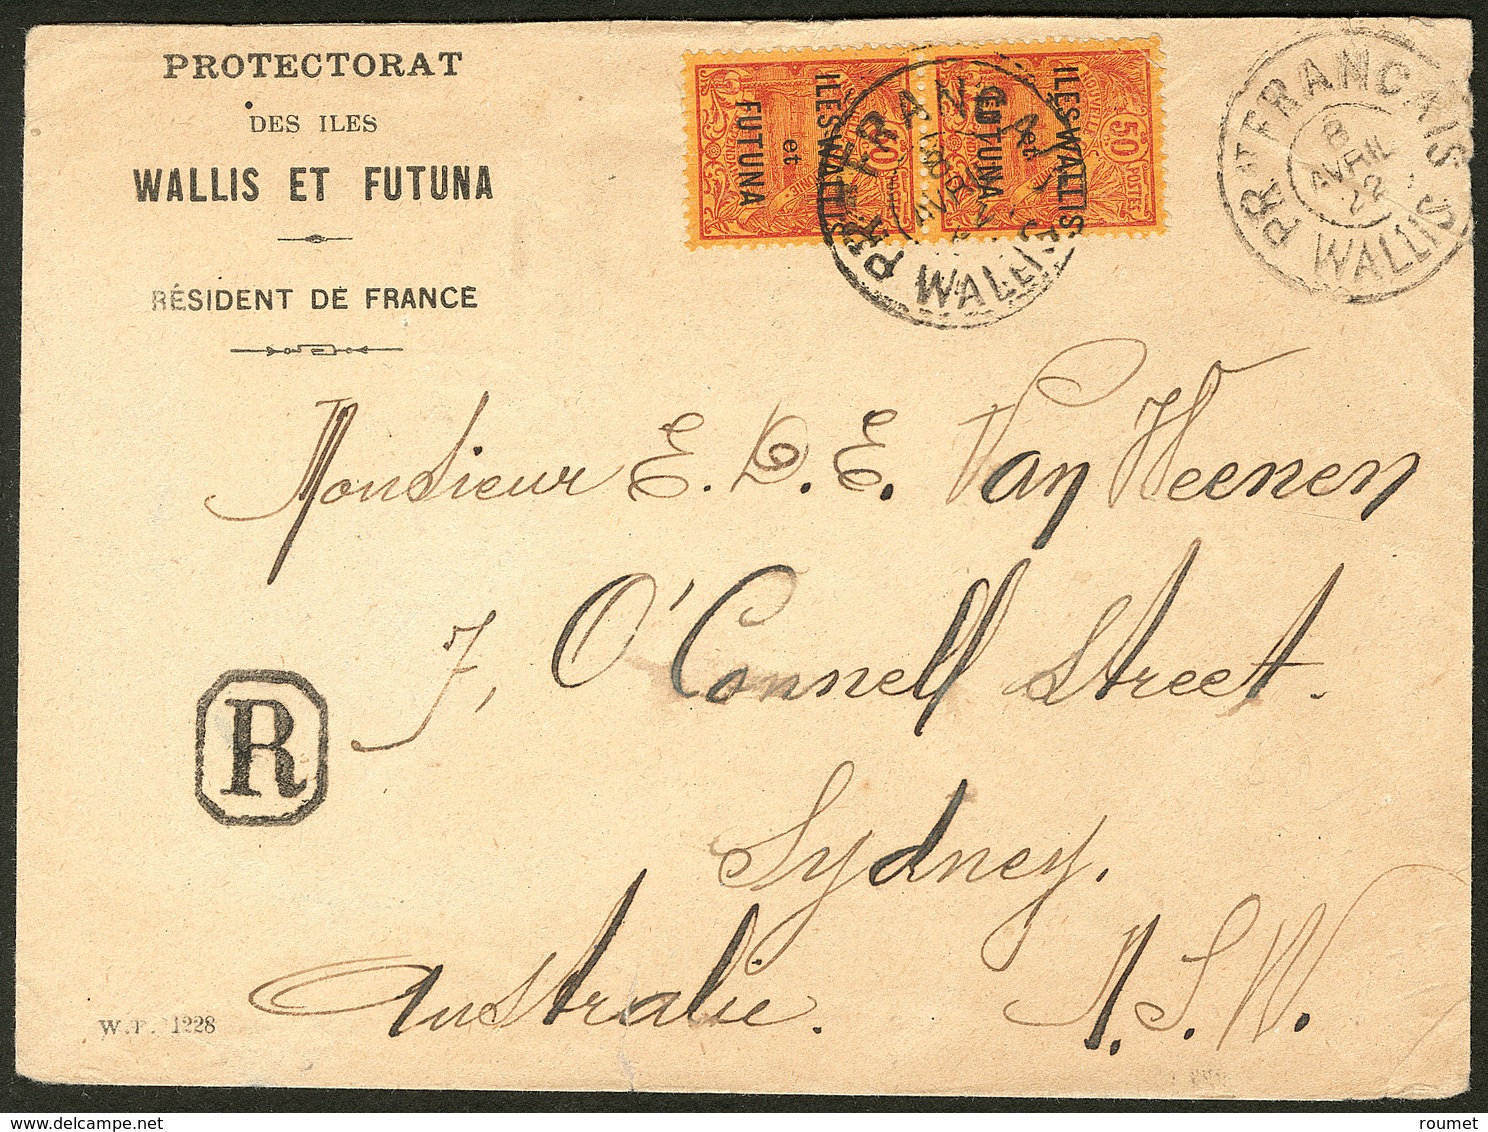 PROTECTORAT
DES ILES
WALLIS ET FUTUNA
RÉSIDENT DE FRANCE
ILES WALLIS
et
FUTUNA
50
ILES WALLIS
et
FUTUNA
NOUVELLE
50
POSTES
PRT FRANCAIS
WALLIS
PRT FRANCAIS
8
AVRIL
22
WALLIS
Monsieur E. D. E. Van Weenen
7, O'Connell Street.
R
Sydney.
Australie. N.S.W.
W.P. 1228
delcampe.net
roumet